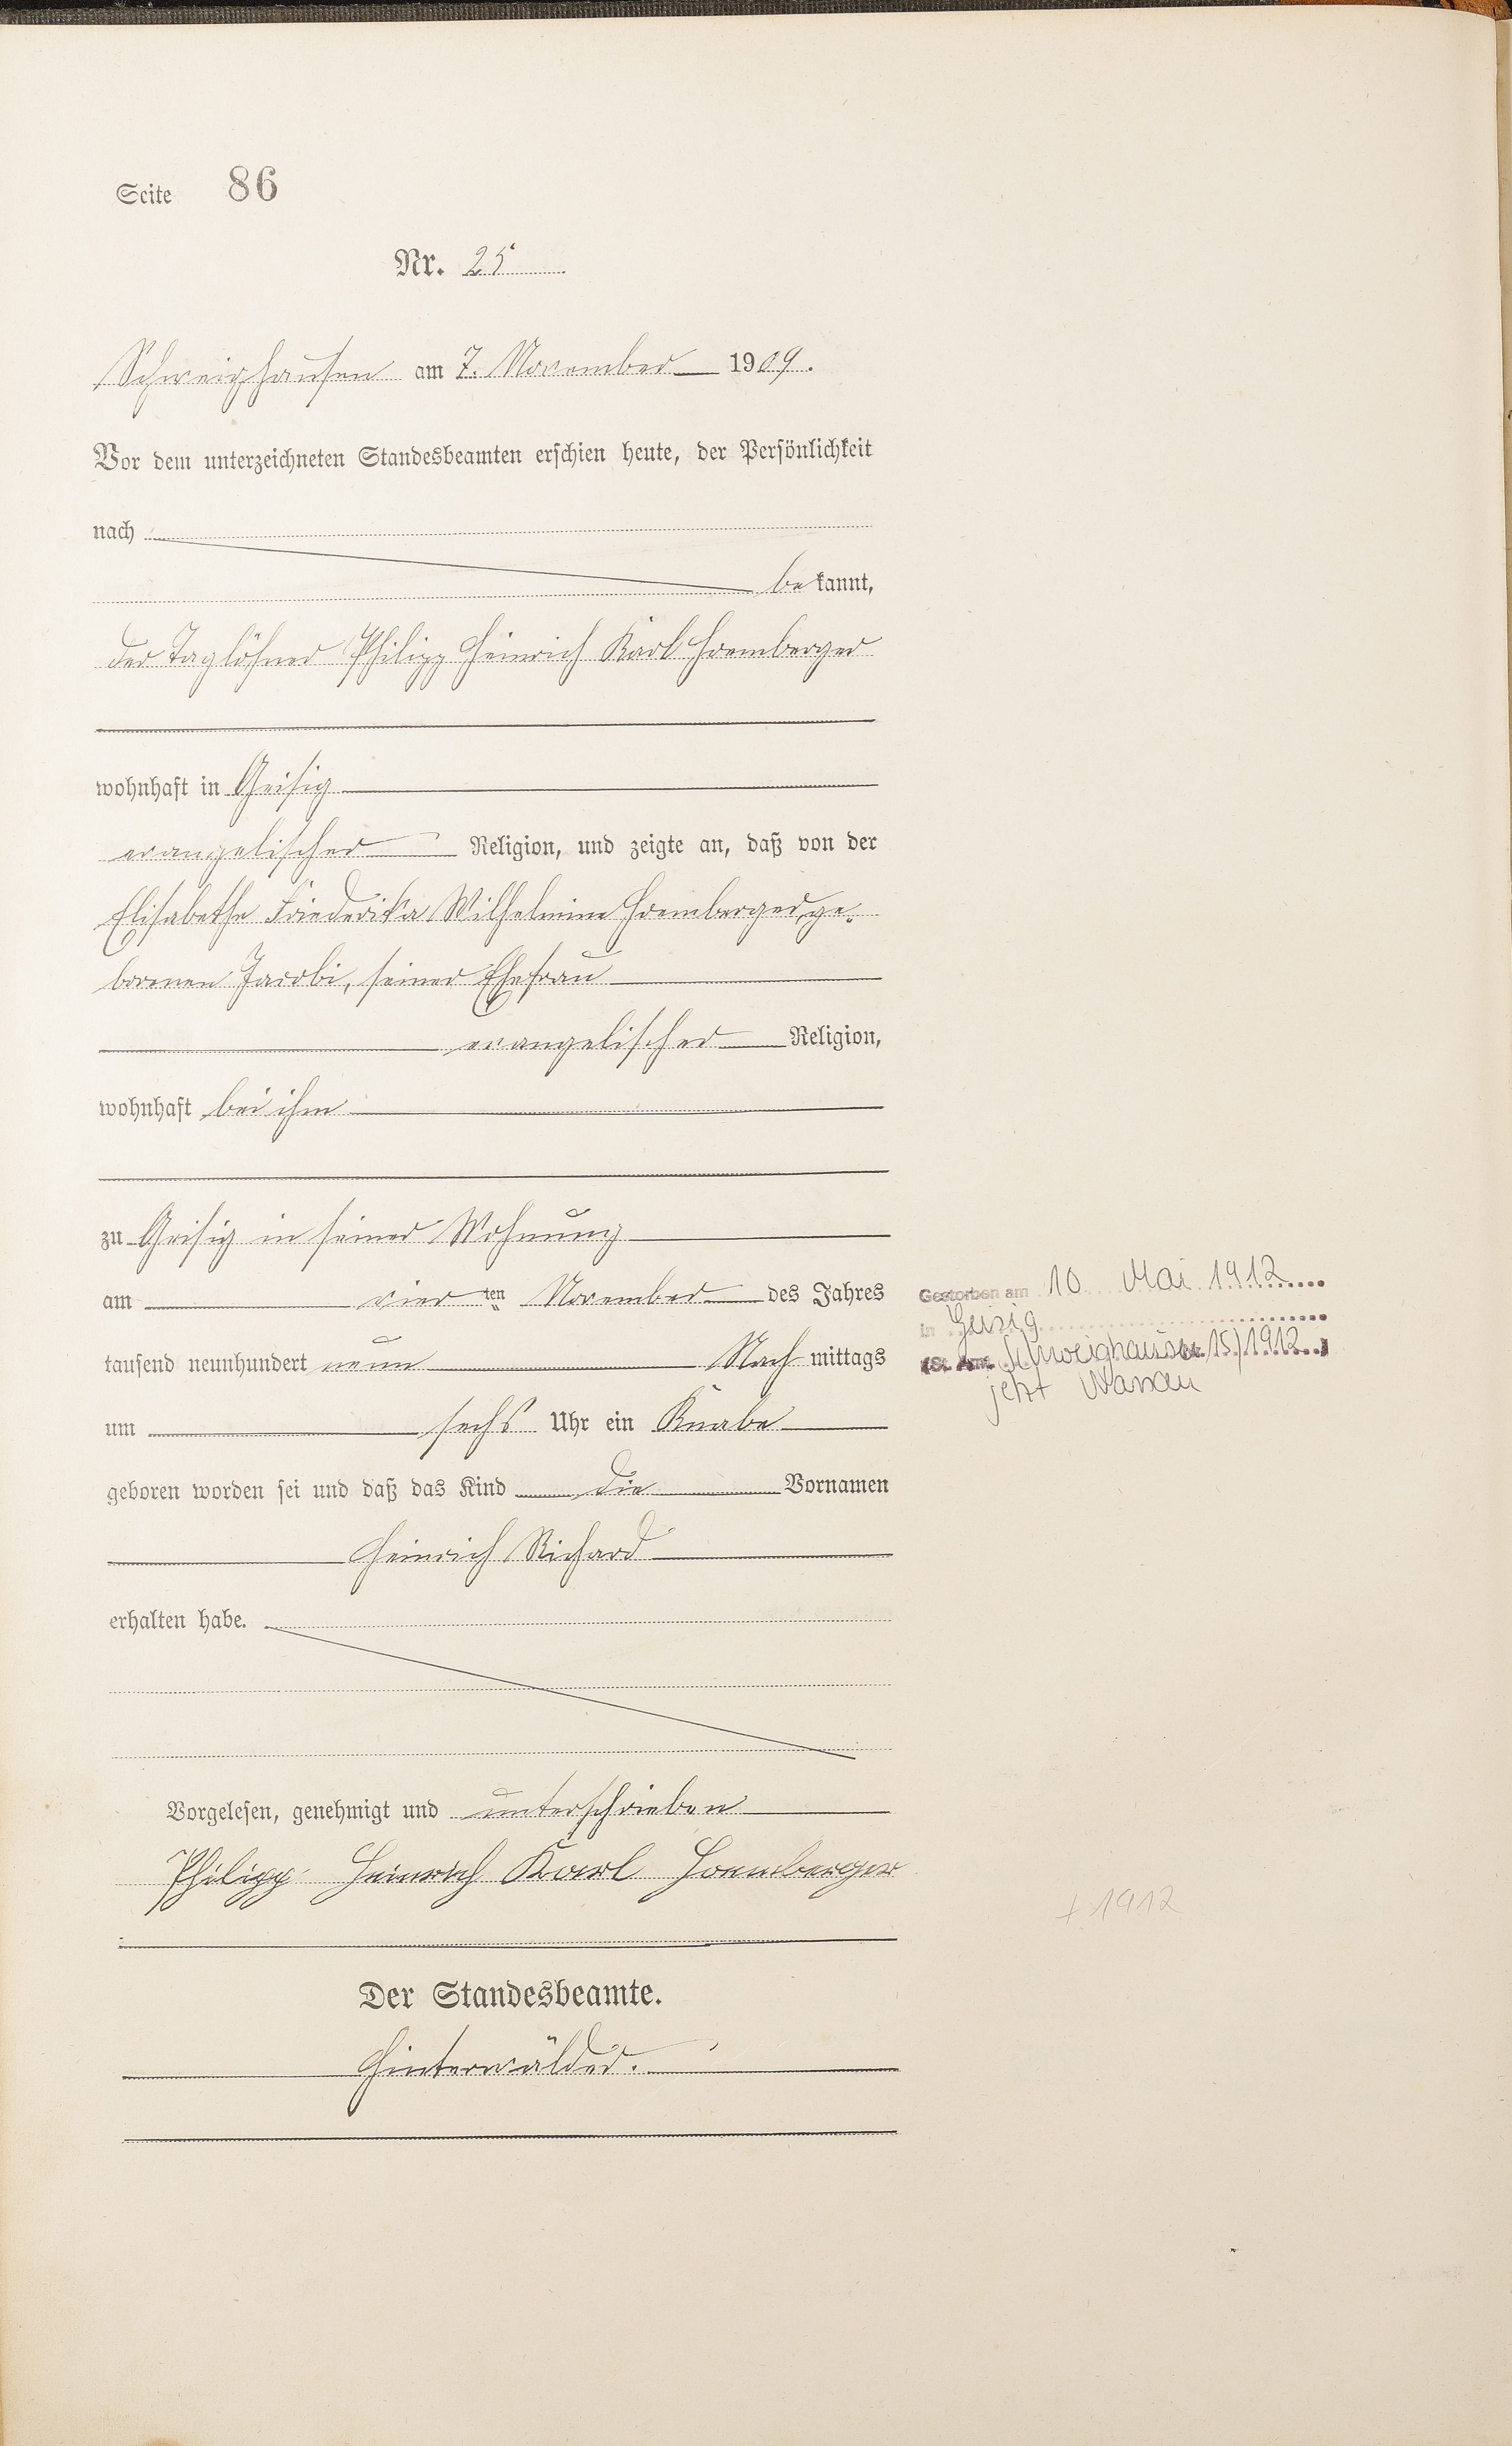 Seite 86
Nr. 25
Schweighausen am 7. November 1909.
Vor dem unterzeichneten Standesbeamten erschien heute, der Persönlichkeit
nach
bekannt,
der Taglöhner Philipp Heinrich Karl Hremberger
wohnhaft in Geisig
evangelischer Religion, und zeigte an, daß von der
Elisabethe Friederika Wilhelmine Hremberger, ge-
borenen Jacobi, seiner Ehefrau
evangelischer Religion,
wohnhaft bei ihm
zu Geisig in seiner Wohnung
am vier ten November des Jahres
tausend neunhundert neun Nachmittags
um sechs Uhr ein Knabe
geboren worden sei und daß das Kind die Vornamen
Heinrich Richard
erhalten habe.
Vorgelesen, genehmigt und unterschrieben
Philipp Heinrich Karl Hremberger
Der Standesbeamte.
Hinterwälder.
Gestorben am 10. Mai 1912
in Geisig
(St. Amt Schweighausen Nr. 15/1912)
jetzt Nassau
+ 1912